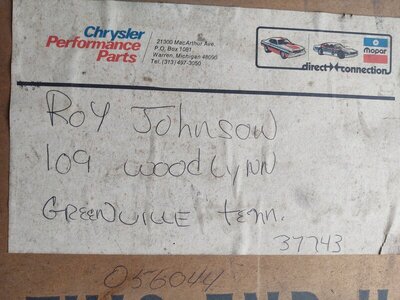 Chrysler
Performance
Parts
21300 MacArthur Ave.
P.O. Box 1081
Warren, Michigan 48090
Tel. (313) 497-3050
Mopar
direct connection
Roy Johnson
109 Woodlynn
Greenville Tenn.
37743
056044
THIS END U